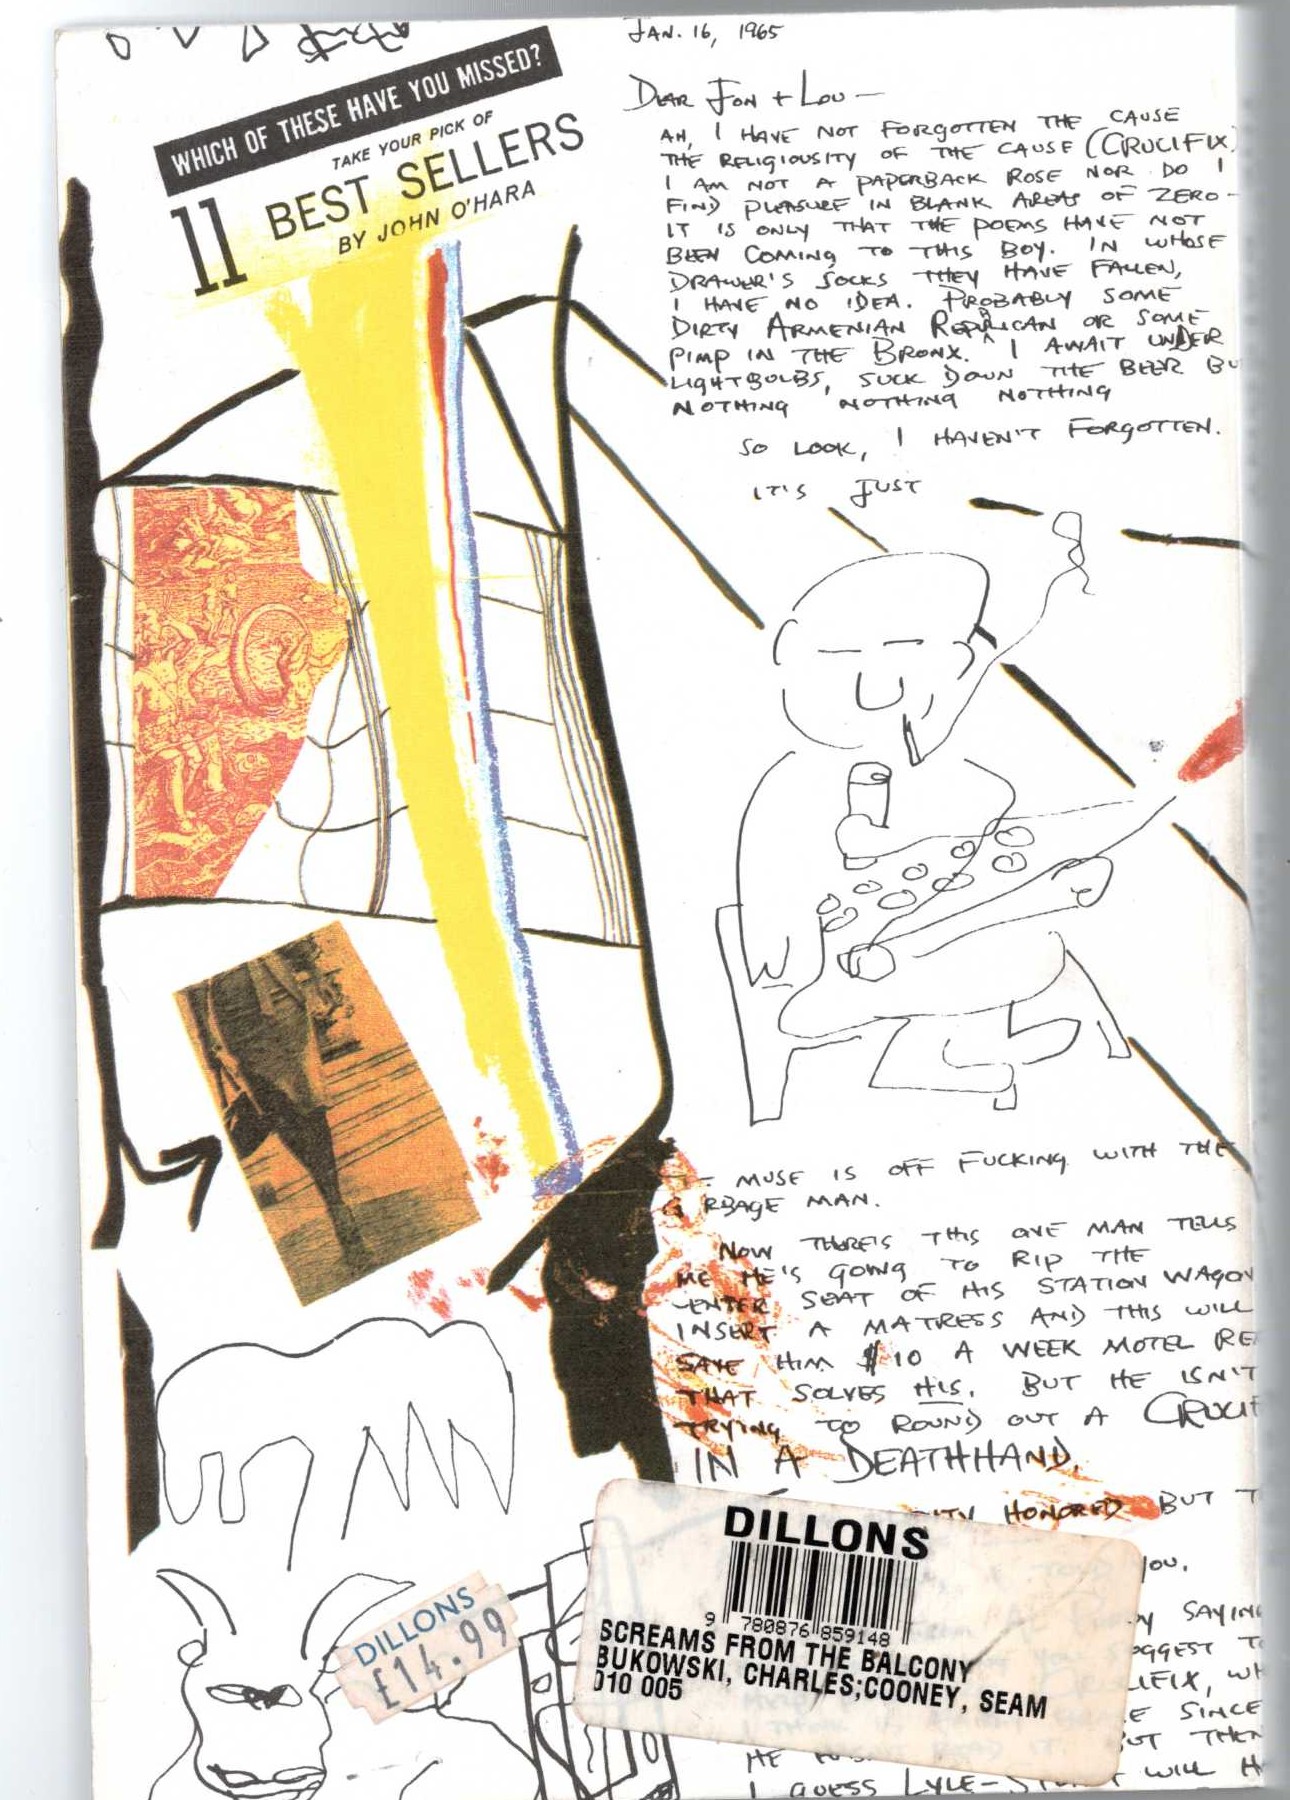 WHICH OF THESE HAVE YOU MISSED?
TAKE YOUR PICK OF
11 BEST SELLERS
BY JOHN O'HARA
JAN. 16, 1965
DEAR JON + LOU —
AH, I HAVE NOT FORGOTTEN THE CAUSE
THE RELIGIOUSITY OF THE CAUSE (CRUCIFIX)
I AM NOT A PAPERBACK ROSE NOR DO I
FIND PLEASURE IN BLANK AREAS OF ZERO –
IT IS ONLY THAT THE POEMS HAVE NOT
BEEN COMING TO THIS BOY. IN WHOSE
DRAWER'S SOCKS THEY HAVE FALLEN,
I HAVE NO IDEA. PROBABLY SOME
DIRTY ARMENIAN REPUBLICAN OR SOME
PIMP IN THE BRONX. I AWAIT UNDER
LIGHTBULBS, SUCK DOWN THE BEER BU
NOTHING NOTHING NOTHING
SO LOOK, I HAVEN'T FORGOTTEN.
IT'S JUST
MUSE IS OFF FUCKING WITH THE
RBAGE MAN.
NOW THERE'S THIS ONE MAN TELLS
ME HE'S GOING TO RIP THE
CENTER SEAT OF HIS STATION WAGON
INSERT A MATRESS AND THIS WILL
SAVE HIM $10 A WEEK MOTEL RE
THAT SOLVES HIS. BUT HE ISN'T
TRYING TO ROUND OUT A CRUCIF
IN A DEATHHAND.
ITY HONORED BUT T
YOU.
SAYING
UGGEST T
CIFIX, WH
E SINCE
HE BUT THEN
I GUESS LYLE-ST T WILL H
DILLONS
£14.99
DILLONS
9 780876 859148
SCREAMS FROM THE BALCONY
BUKOWSKI, CHARLES;COONEY, SEAM
010 005